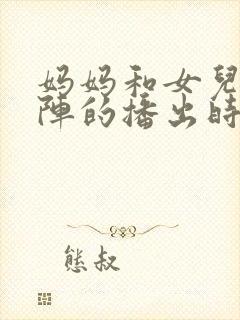 妈妈和女兒
陣的播出時
熊叔